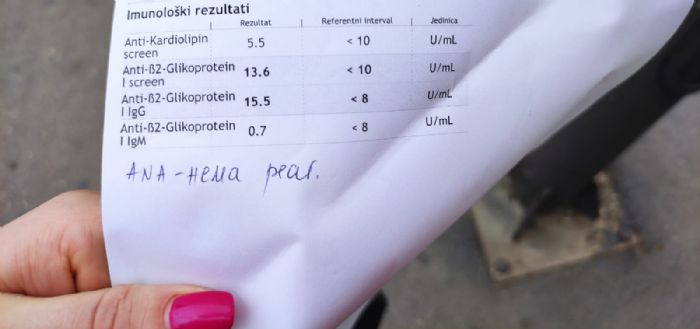 Imunološki rezultati
Rezultat Referentni interval Jedinica
Anti-Kardiolipin screen 5.5 < 10 U/mL
Anti-ß2-Glikoprotein I screen 13.6 < 10 U/mL
Anti-ß2-Glikoprotein I IgG 15.5 < 8 U/mL
Anti-ß2-Glikoprotein I IgM 0.7 < 8 U/mL
ANA-нема реаг.